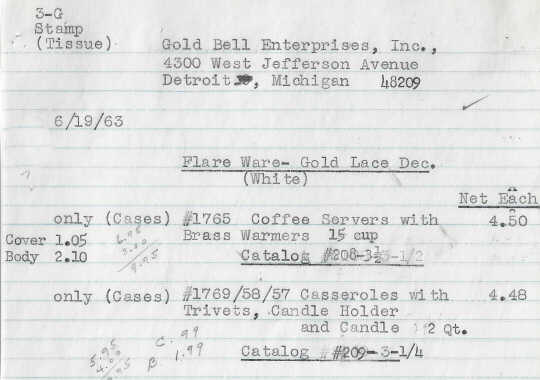 3-G
Stamp
(Tissue)
Gold Bell Enterprises, Inc.,
4300 West Jefferson Avenue
Detroit , Michigan 48209
6/19/63
Flare Ware- Gold Lace Dec.
(White)
Net Each
only (Cases) #1765 Coffee Servers with 4.50
Cover 1.05 Brass Warmers 15 cup
Body 2.10 Catalog #208-3½-1/2
6.95
3.00
9.95
only (Cases) #1769/58/57 Casseroles with 4.48
Trivets, Candle Holder
and Candle 2 Qt.
Catalog #209-3-1/4
5.95 C .99
4.00 B 1.99
9.95